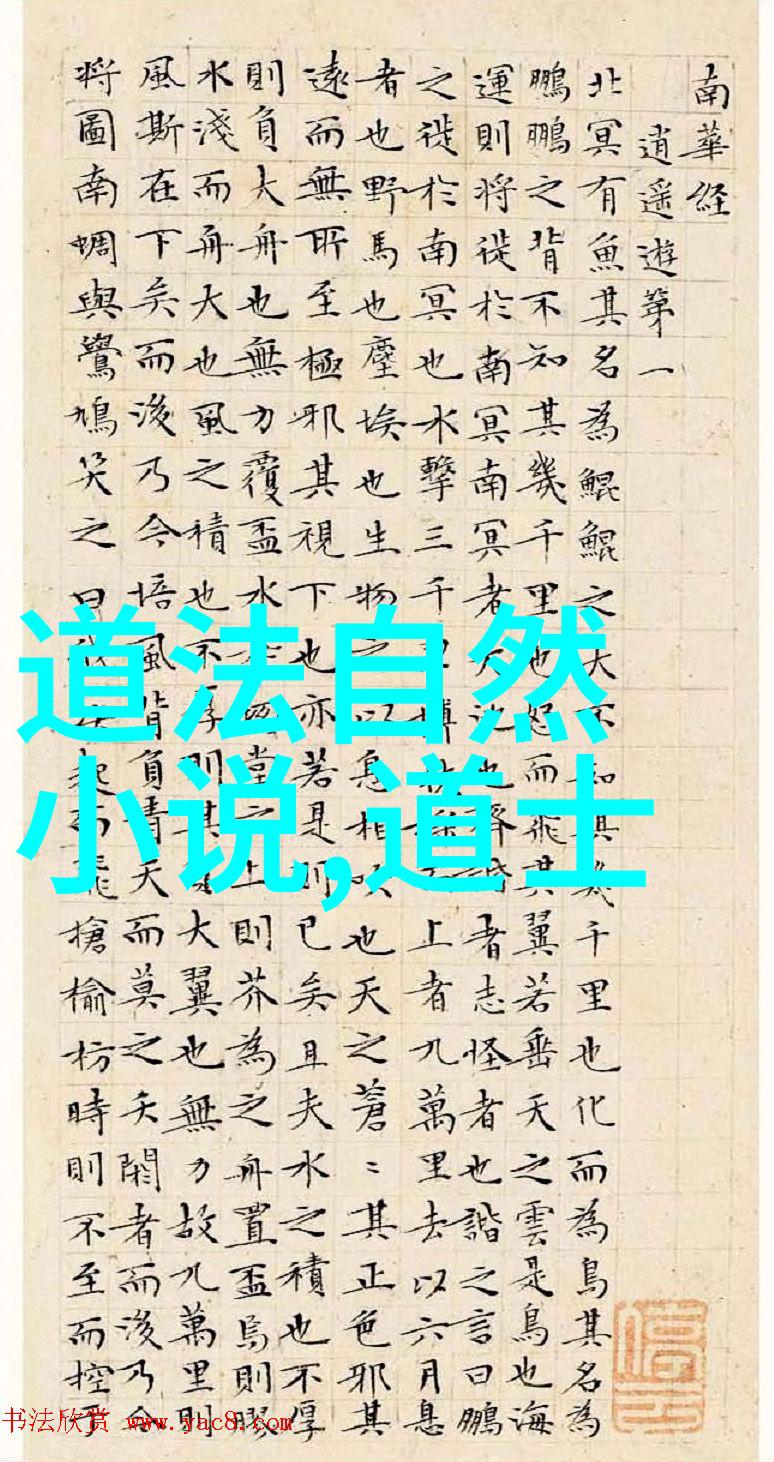 南華經
逍遥遊第一
北冥有魚其名為鯤鯤之大不知其幾千里也化而為鳥其名為
鵬鵬之背不知其幾千里也怒而飛其翼若垂天之雲是鳥也海
運則將徙於南冥南冥者天池也齊諧者志怪者也諧之言曰鵬
之徙於南冥也水擊三千里摶扶上者九萬里去以六月息
者也野馬也塵埃也生物之以息相吹也天之蒼〻其正色邪其
遠而無所至極邪其視下也亦若是則已矣且夫水之積也不厚
則負大舟也無力覆盃水於坳堂之上則芥為之舟置盃焉則膠
水淺而舟大也風之積也不厚則其負大翼也無力故九萬里則
風斯在下矣而後乃今培風背負青天而莫之夭閼者而後乃今
將圖南蜩與鷽鳩笑之曰我決起而飛搶榆枋時則不至而控於
道法自然
小说,道士
书法欣赏 www.yac8.com